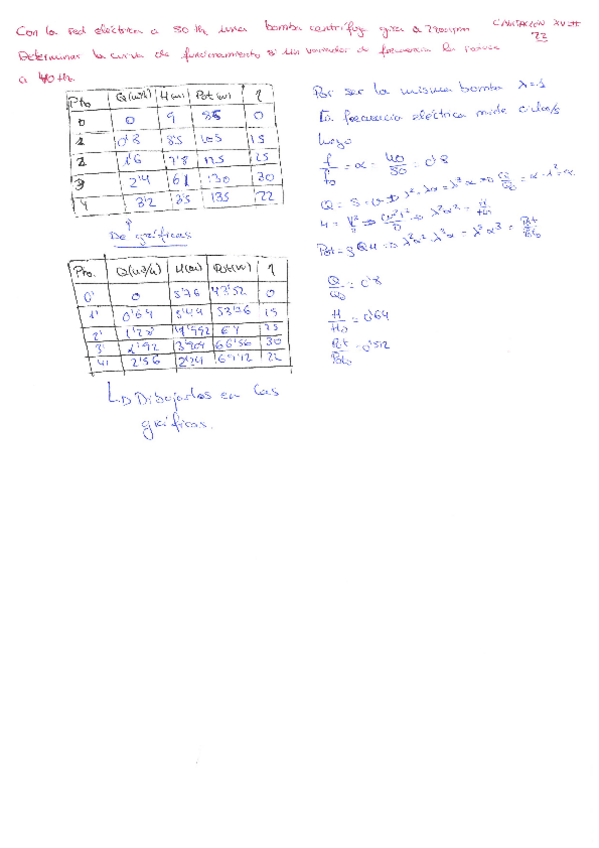 Con la red eléctrica a 50 Hz una bomba centrífuga gira a 2200rpm
Determinar la curva de funcionamiento si un variador de frecuencia la
a 40 Hz.
Pto Q(m³/h) H(m) Pot(w) η
0 0 9 85 0
1 0'8 8'5 105 15
2 1'6 7'8 125 25
3 2'4 6'1 130 30
4 3'2 3'5 135 22
De gráficas
Pto. Q(m³/h) H(m) Pot(w) η
0' 0 5'76 43'52 0
1' 0'64 5'44 53'76 15
2' 1'28 4'992 64 25
3' 1'92 3'904 66'56 30
4' 2'56 2'24 69'12 22
Dibujarlos en las
gráficas.
Por ser la misma bomba λ=1
La frecuencia eléctrica mide ciclos/s
luego
f/f₀ = α = 40/50 = 0'8
Q/Q₀ = 0'8
H/H₀ = 0'64
Pot/Pot₀ = 0'512